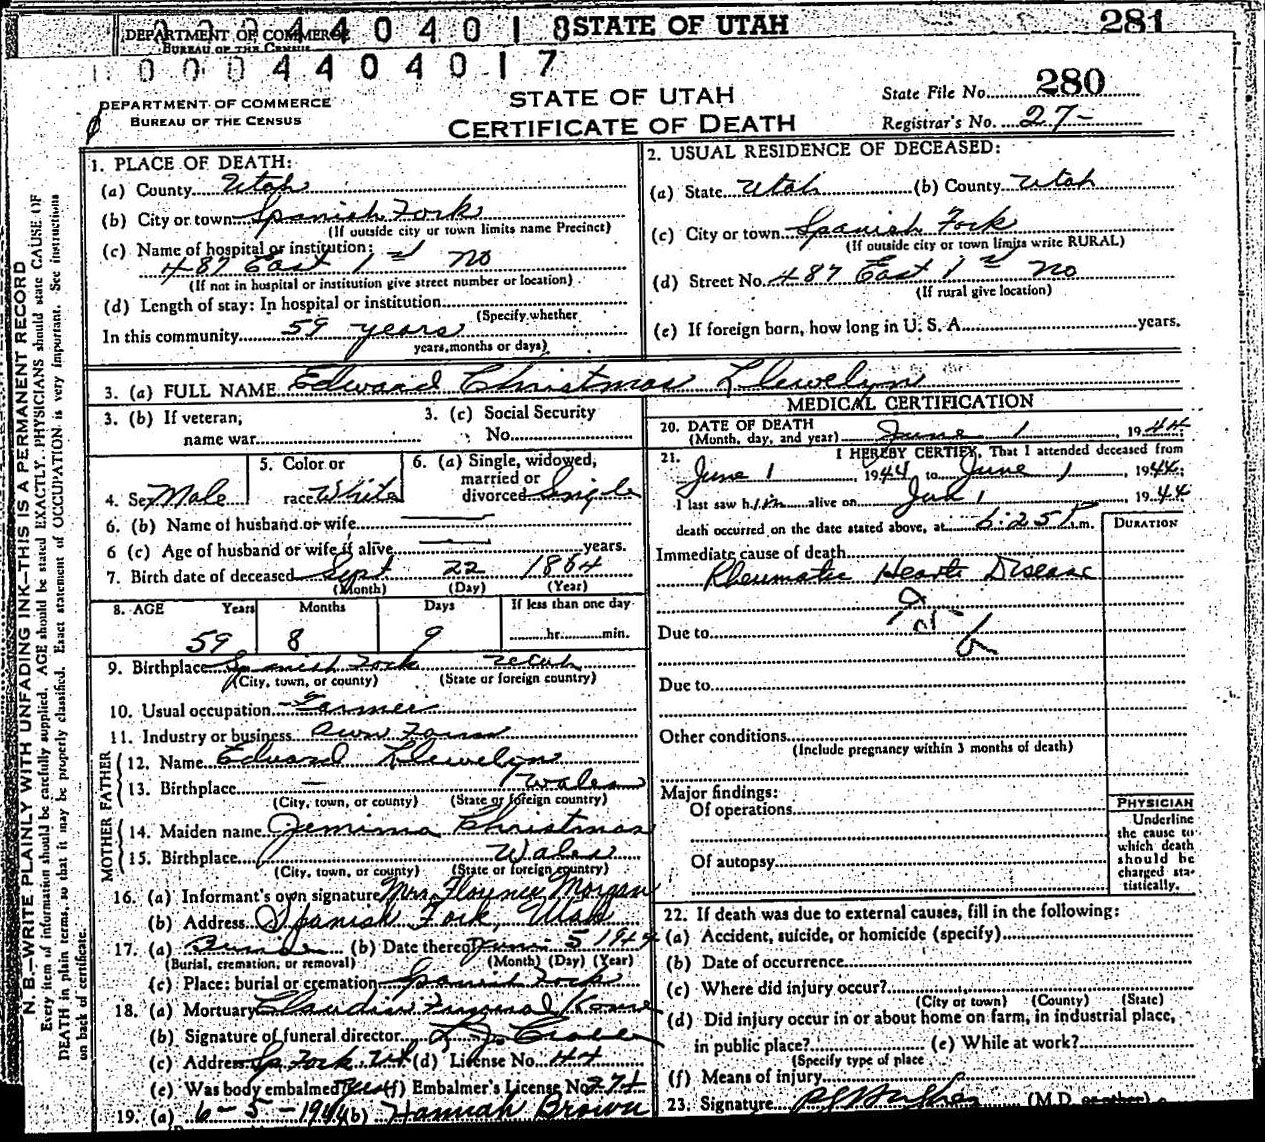 DEPARTMENT OF COMMERCE
BUREAU OF THE CENSUS
0 0 0 4 4 0 4 0 1 8
STATE OF UTAH
281
0 0 0 4 4 0 4 0 1 7
DEPARTMENT OF COMMERCE
BUREAU OF THE CENSUS
STATE OF UTAH
CERTIFICATE OF DEATH
State File No. 280
Registrar's No. 27-
N. B.—WRITE PLAINLY WITH UNFADING INK—THIS IS A PERMANENT RECORD
Every item of information should be carefully supplied. AGE should be stated EXACTLY. PHYSICIANS should state CAUSE OF
DEATH in plain terms, so that it may be properly classified. Exact statement of OCCUPATION is very important. See instructions
on back of certificate.
1. PLACE OF DEATH:
(a) County Utah
(b) City or town Spanish Fork
(If outside city or town limits name Precinct)
(c) Name of hospital or institution:
487 East 1st No
(If not in hospital or institution give street number or location)
(d) Length of stay: In hospital or institution
(Specify whether
In this community 59 years
years, months or days)
2. USUAL RESIDENCE OF DECEASED:
(a) State Utah (b) County Utah
(c) City or town Spanish Fork
(If outside city or town limits write RURAL)
(d) Street No. 487 East 1st No
(If rural give location)
(e) If foreign born, how long in U. S. A. years.
3. (a) FULL NAME Edward Christmas Llewelyn
3. (b) If veteran, name war
3. (c) Social Security No.
4. Sex Male
5. Color or race White
6. (a) Single, widowed, married or divorced Single
6. (b) Name of husband or wife
6 (c) Age of husband or wife if alive years.
7. Birth date of deceased Sept 22 1864
(Month) (Day) (Year)
8. AGE Years Months Days If less than one day
59 8 9 hr. min.
9. Birthplace Spanish Fork Utah
(City, town, or county) (State or foreign country)
10. Usual occupation Farmer
11. Industry or business Own Farm
FATHER
12. Name Edward Llewelyn
13. Birthplace — Wales
(City, town, or county) (State or foreign country)
MOTHER
14. Maiden name Jemima Christmas
15. Birthplace Wales
(City, town, or county) (State or foreign country)
16. (a) Informant's own signature Mrs. Florence Morgan
(b) Address Spanish Fork, Utah
17. (a) Burial (b) Date thereof June 5 1944
(Burial, cremation, or removal) (Month) (Day) (Year)
(c) Place: burial or cremation Spanish Fork
18. (a) Mortuary Claudin Funeral Home
(b) Signature of funeral director
(c) Address Sp. Fork Ut (d) License No. 44
(e) Was body embalmed yes (f) Embalmer's License No. 274
19. (a) 6-5-1944 (b) Hannah Brown
MEDICAL CERTIFICATION
20. DATE OF DEATH
(Month, day, and year) June 1, 1944
21. I HEREBY CERTIFY, That I attended deceased from
June 1 1944 to June 1 1944;
I last saw him alive on 1 1944
death occurred on the date stated above, at 6:25 P m.
DURATION
Immediate cause of death
Rheumatic Heart Disease
Due to
Due to
Other conditions
(Include pregnancy within 3 months of death)
Major findings:
Of operations
Of autopsy
PHYSICIAN
Underline
the cause to
which death
should be
charged sta-
tistically.
22. If death was due to external causes, fill in the following:
(a) Accident, suicide, or homicide (specify)
(b) Date of occurrence
(c) Where did injury occur?
(City or town) (County) (State)
(d) Did injury occur in or about home on farm, in industrial place,
in public place? (e) While at work?
(Specify type of place
(f) Means of injury
23. Signature (M.D. or other)